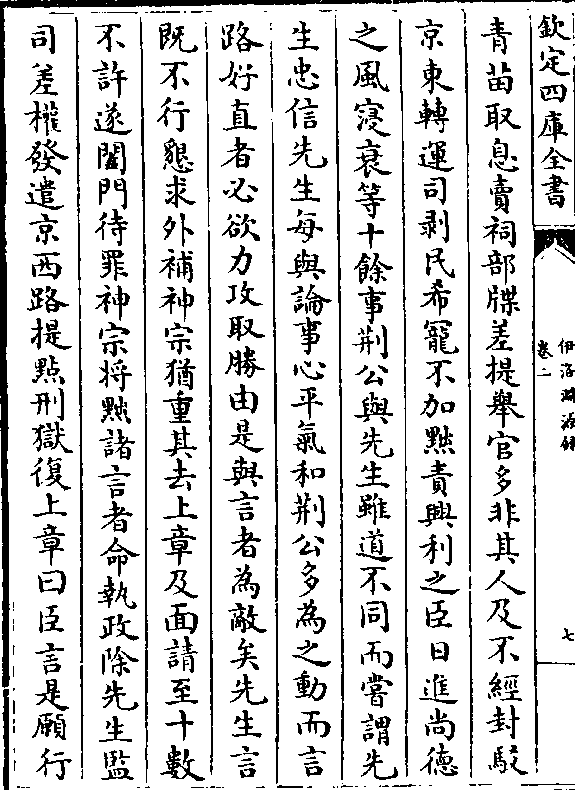 欽定四庫全書
伊洛淵源録
卷二
七
青苗取息賣祠部牒差提舉官多非其人及不經封駁
京東轉運司剥民希寵不加黜責興利之臣日進尚德
之風寖衰等十餘事荆公與先生雖道不同而嘗謂先
生忠信先生每與論事心平氣和荆公多為之動而言
路好直者必欲力攻取勝由是與言者為敵矣先生言
既不行懇求外補神宗猶重其去上章及面請至十數
不許遂闔門待罪神宗将黜諸言者命執政除先生監
司差權發遣京西路提點刑獄復上章曰臣言是願行